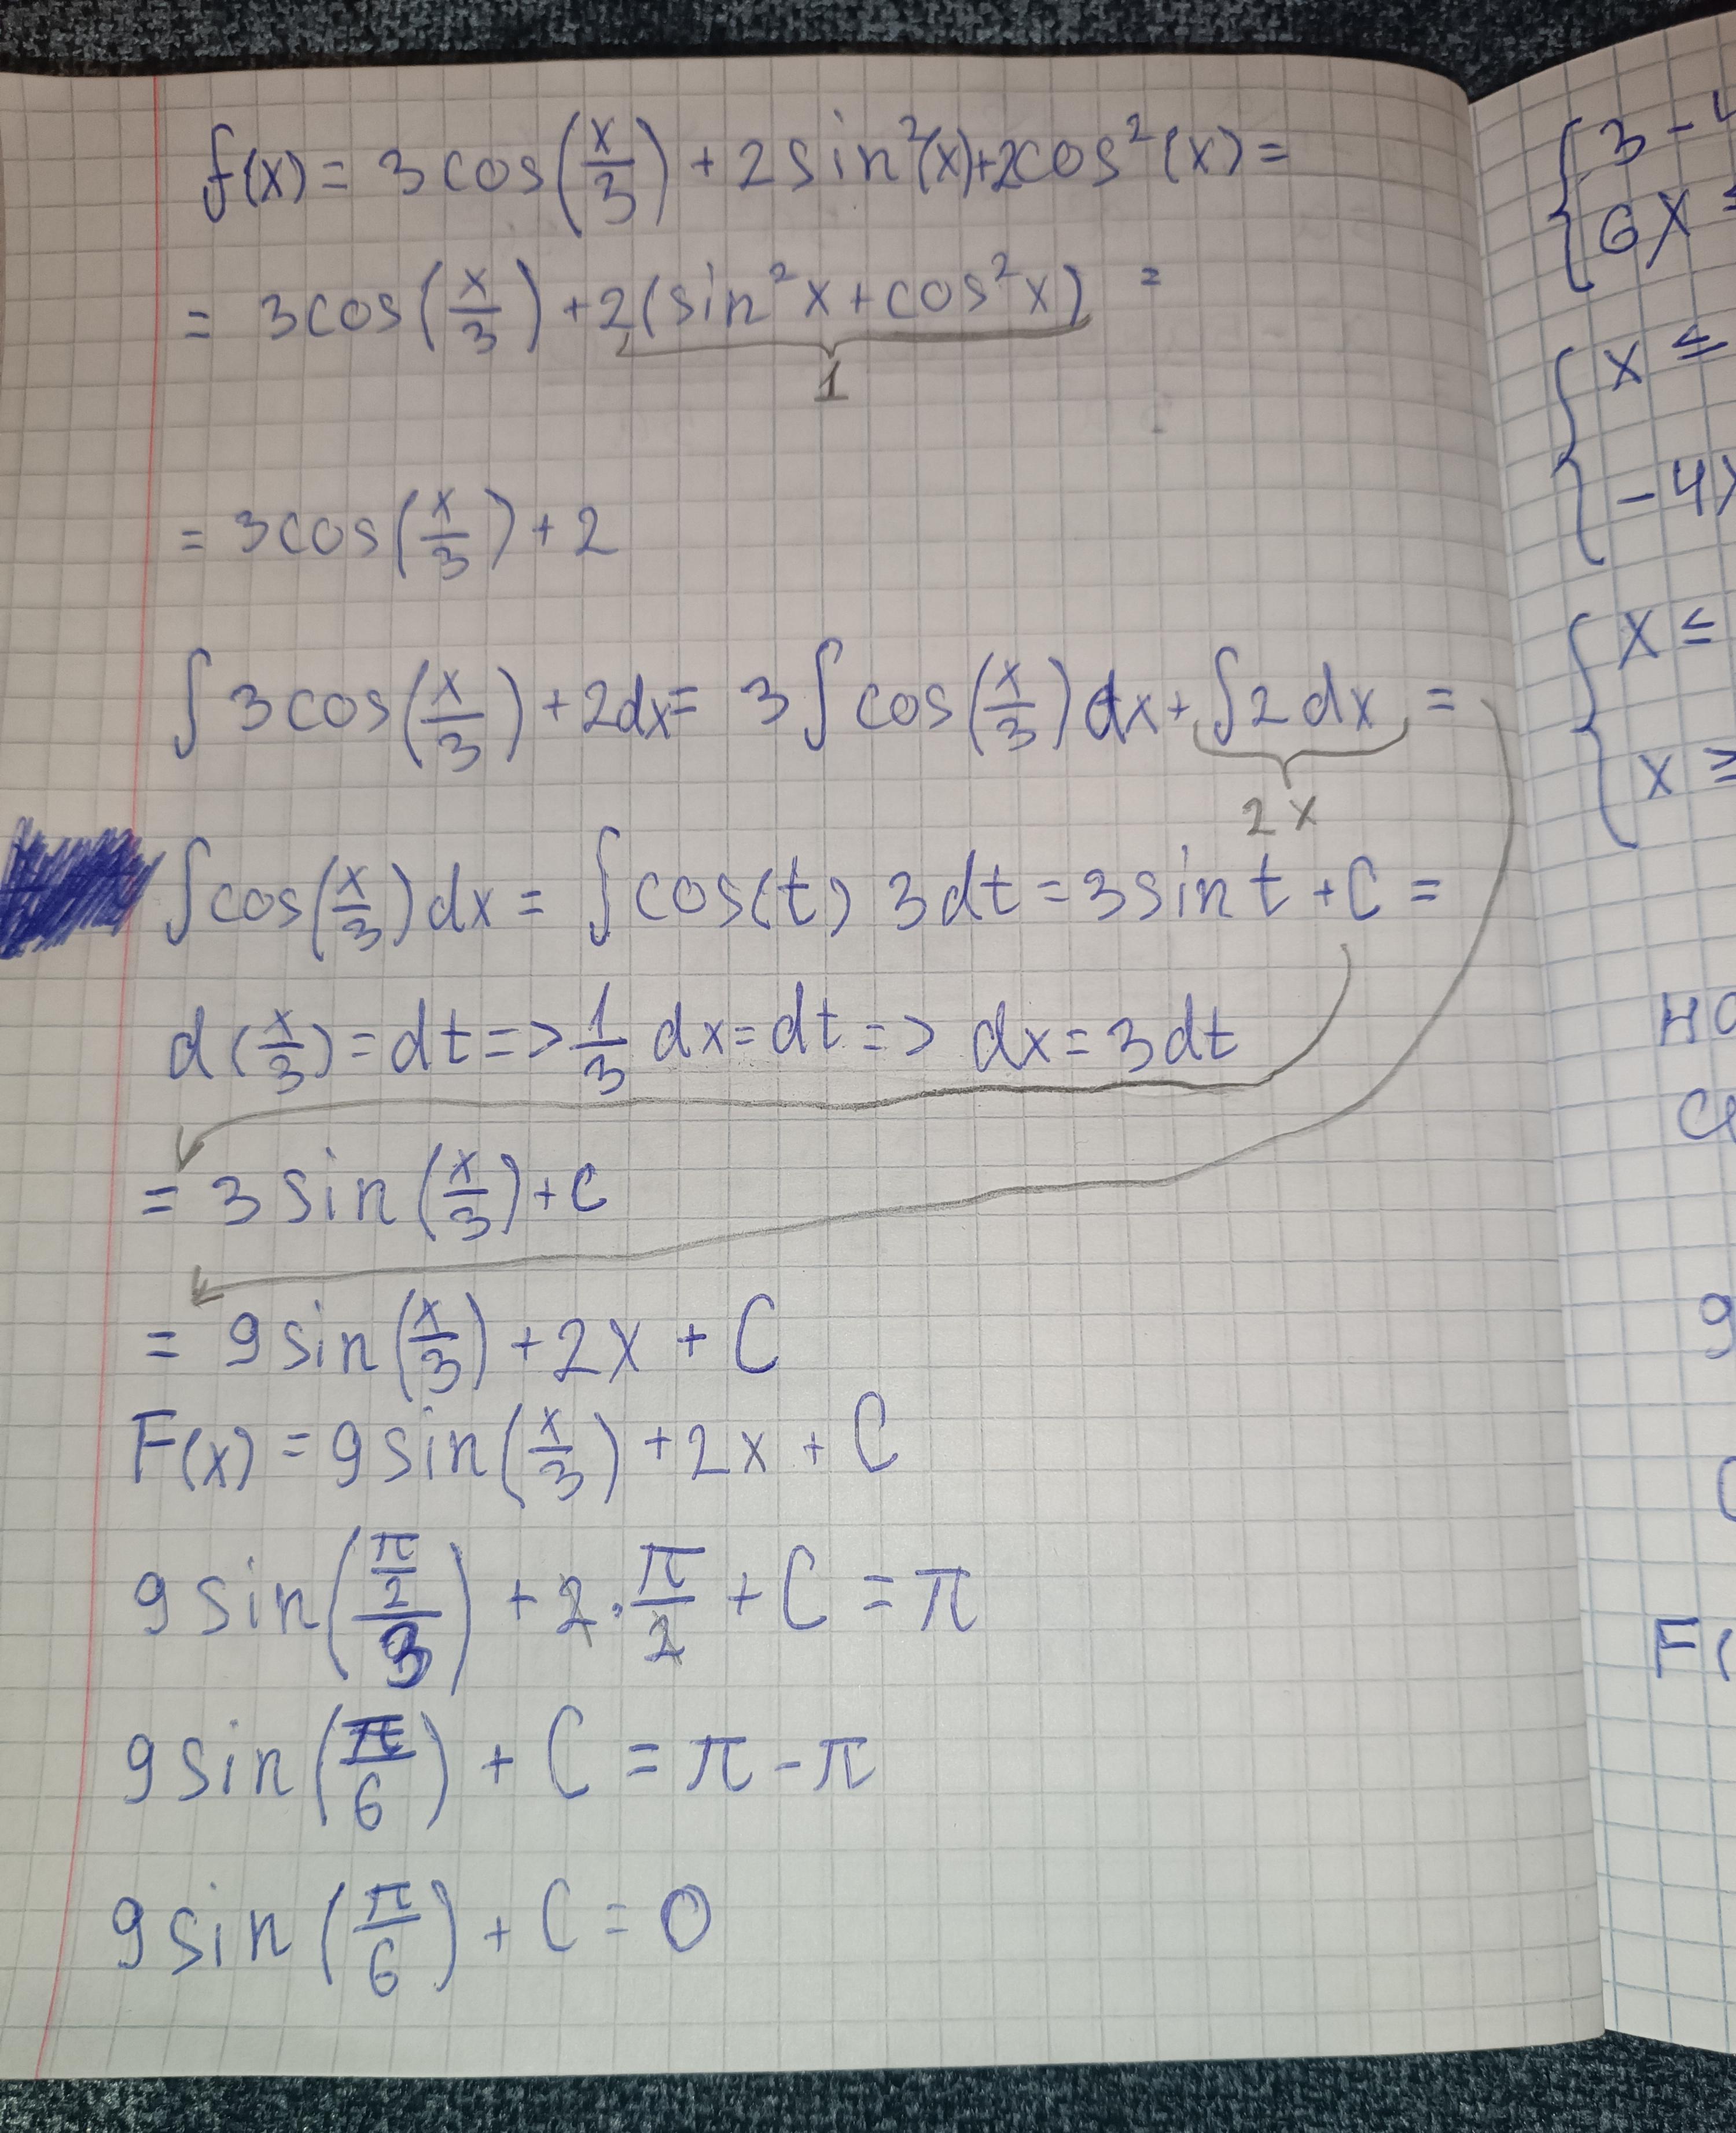 f(x) = 3cos(x/3) + 2sin²(x)+2cos²(x) =
= 3cos(x/3) + 2(sin²x + cos²x) =
1
= 3cos(x/3) + 2
∫3cos(x/3) + 2dx = 3∫cos(x/3)dx + ∫2dx =
2x
∫cos(x/3)dx = ∫cos(t) 3dt = 3sint + C =
d(x/3) = dt => 1/3 dx = dt => dx = 3dt
= 3sin(x/3) + C
= 9sin(x/3) + 2x + C
F(x) = 9sin(x/3) + 2x + C
9sin((π/2)/3) + 2·π/2 + C = π
9sin(π/6) + C = π - π
9sin(π/6) + C = 0
{ 3 - 4
6x
{ x ≤
-4x
{ x ≤
x ≥
но
9
F(